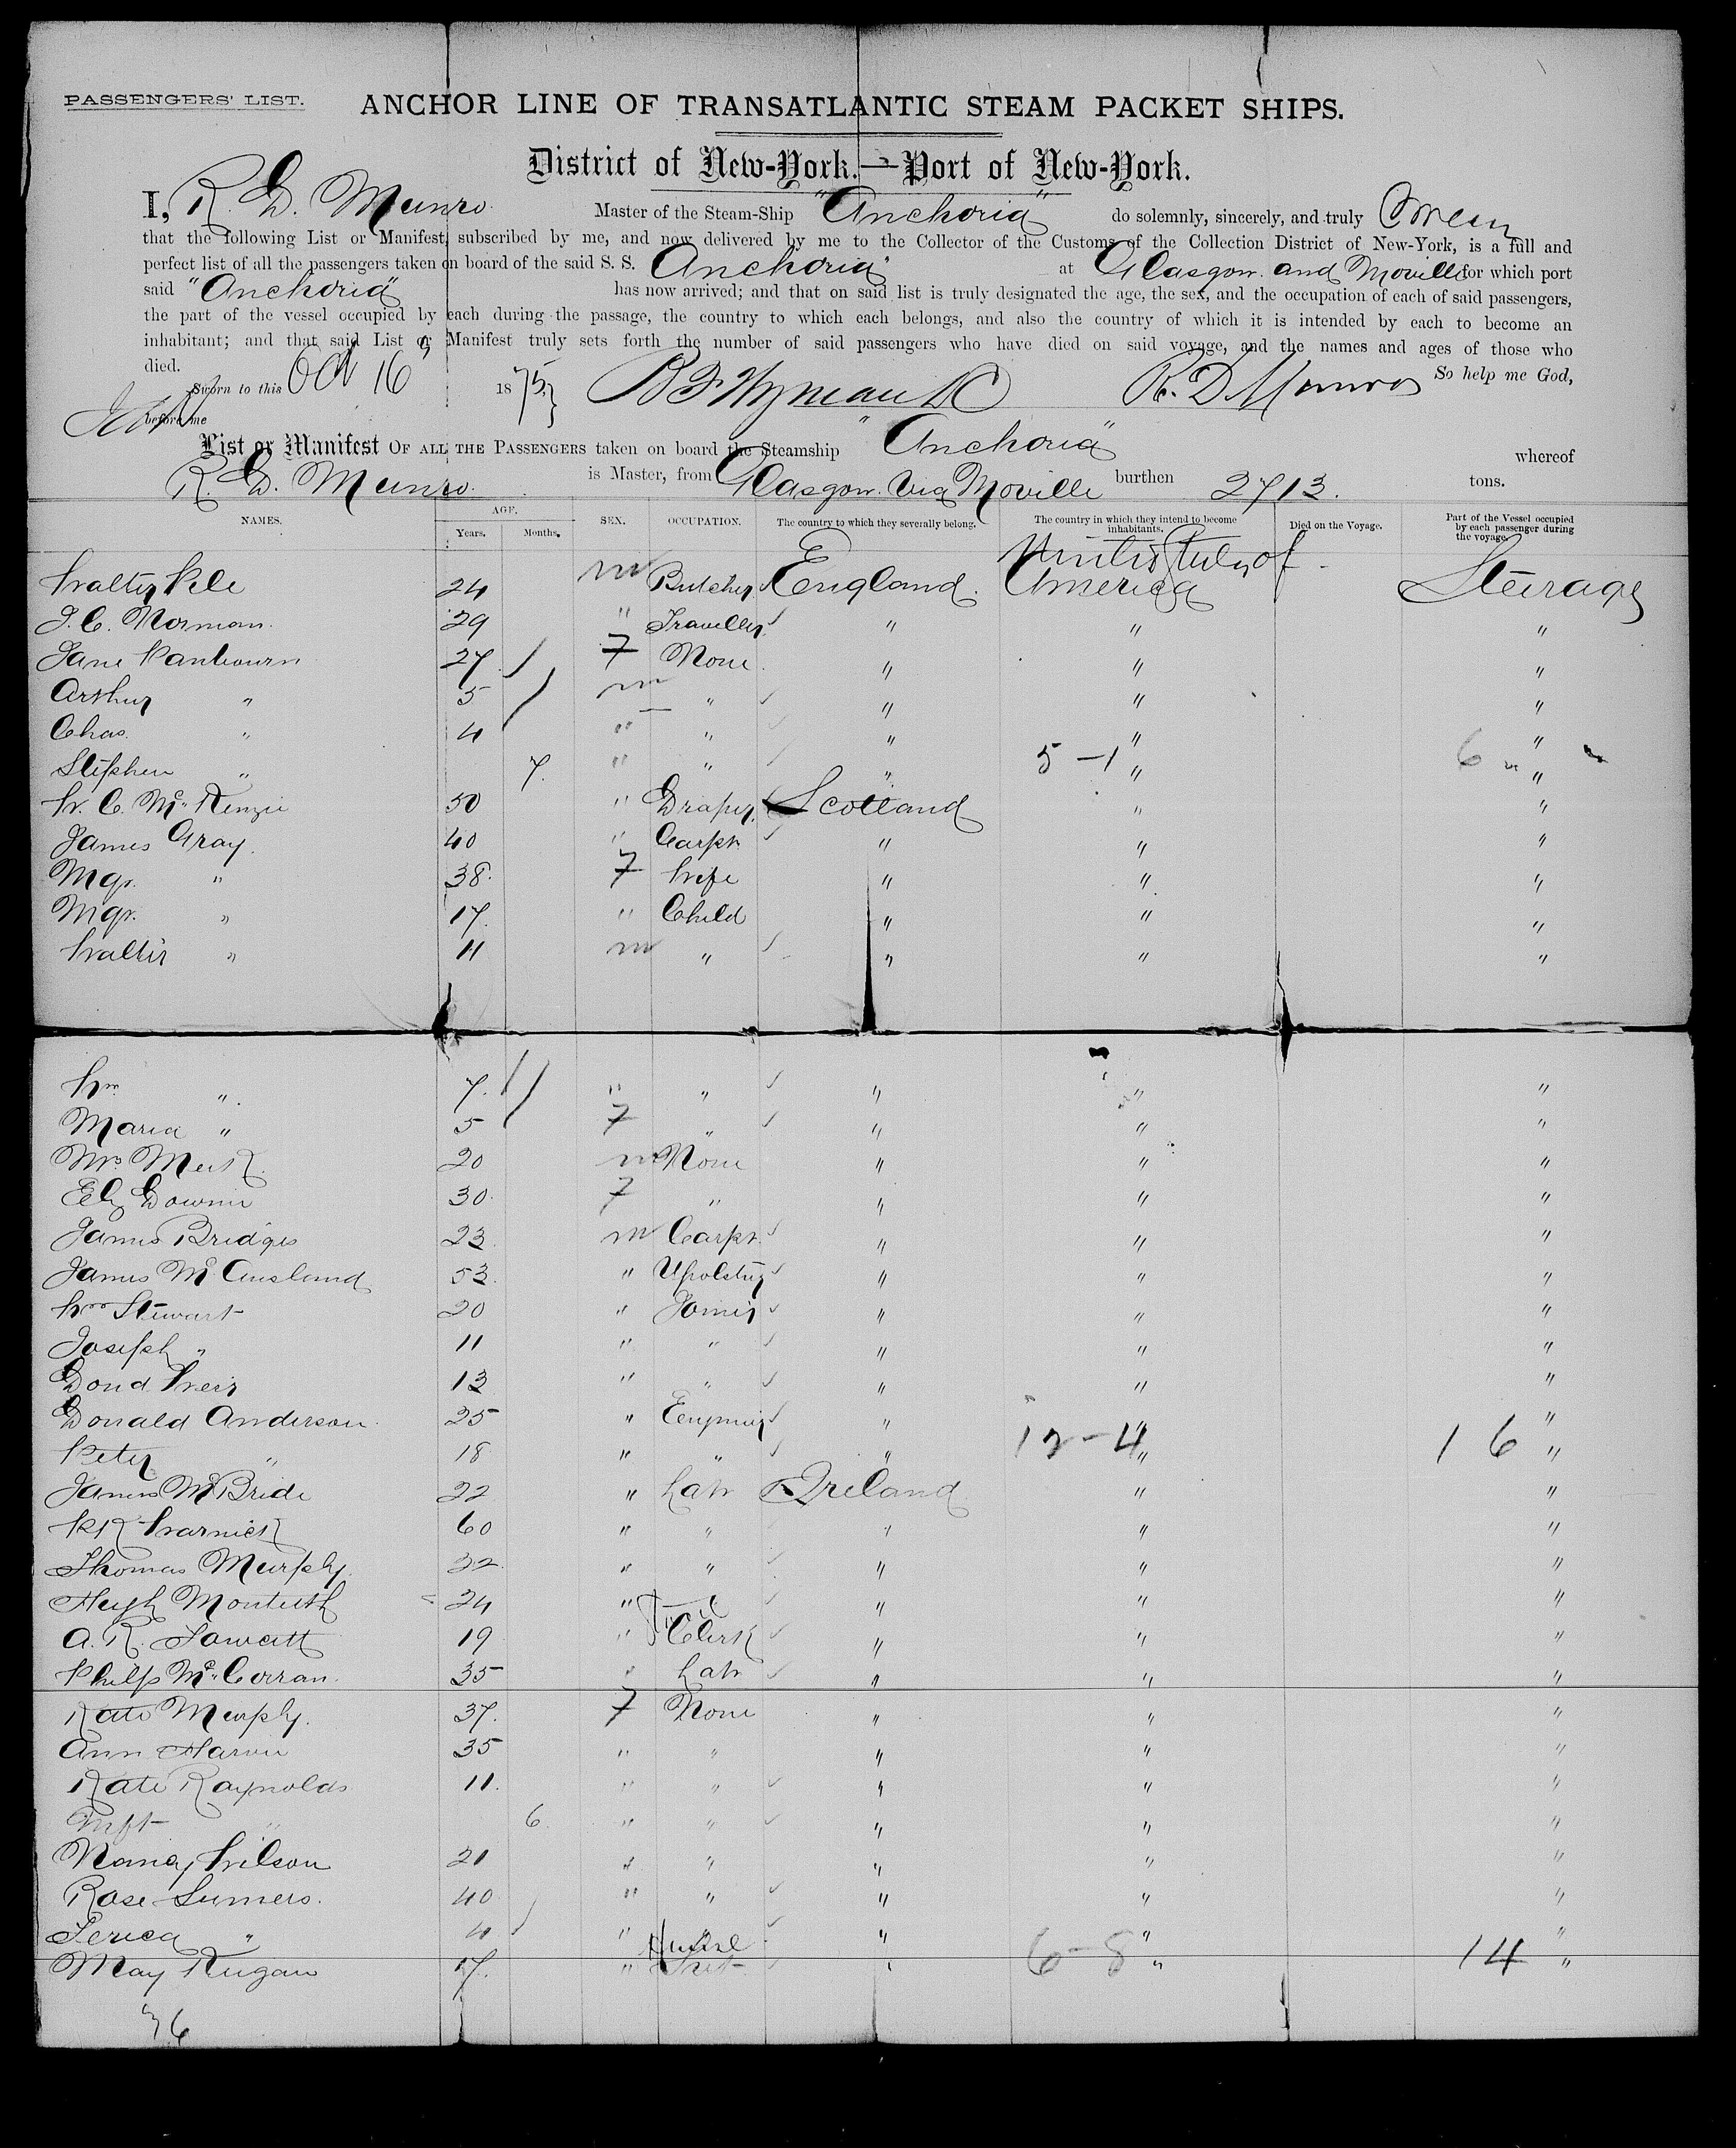 PASSENGERS' LIST.
ANCHOR LINE OF TRANSATLANTIC STEAM PACKET SHIPS.
District of New-York.—Port of New-York.
I, R. D. Munro Master of the Steam-Ship "Anchoria" do solemnly, sincerely, and truly Swear
that the following List or Manifest, subscribed by me, and now delivered by me to the Collector of the Customs of the Collection District of New-York, is a full and
perfect list of all the passengers taken on board of the said S. S. Anchoria" at Glasgow and Moville for which port
said "Anchoria" has now arrived; and that on said list is truly designated the age, the sex, and the occupation of each of said passengers,
the part of the vessel occupied by each during the passage, the country to which each belongs, and also the country of which it is intended by each to become an
inhabitant; and that said List or Manifest truly sets forth the number of said passengers who have died on said voyage, and the names and ages of those who
died. So help me God,
Sworn to this Oct 16 1875, R. D. Munro
before me
List or Manifest OF ALL THE PASSENGERS taken on board the Steamship "Anchoria" whereof
R. D. Munro is Master, from Glasgow via Moville burthen 2713. tons.
NAMES. AGE. Years. Months. SEX. OCCUPATION. The country to which they severally belong. The country in which they intend to become inhabitants. Died on the Voyage. Part of the Vessel occupied by each passenger during the voyage.
Walter Pile 24 m Butcher England United States of America Steerage
J. C. Norman 29 " Traveller " " "
Jane 27 F None " " "
Arthur " 5 m " " " "
Chas. " 4 " " " " "
Stephen " 7. " " " 5 - 1 " 6 "
W. C. McKenzie 50 " Draper Scotland " "
James Gray 40 " Carpr. " " "
Mgr. " 38 F Wife " " "
Mgt. " 17 " Child " " "
Walter " 11 m " " " "
Wm " 7. " " " " "
Maria " 5 F " " " "
Mrs. 20 m None " " "
Eliz Downie 30 F " " " "
James Bridges 23 m Carpr. " " "
James McAusland 53 " Upolster " " "
Wm Stewart 20 " Joiner " " "
Joseph " 11 " " " " "
David Weir 13 " " " " "
Donald Anderson 25 " Engineer " " "
Peter " 18 " " " 12 - 4 " 16 "
James McBride 22 " Lab Ireland " "
Warnick 60 " " " " "
Thomas Murphy 32 " " " " "
Hugh Monteith 24 " " " "
A. R. Fawcett 19 " Clerk " " "
Philip McCorran 35 " Lab " " "
Kate Murphy 37. F None " " "
Ann Harvie 35 " " " " "
Kate Raynolds 11. " " " " "
Inft " 6 " " " " "
Nancy Wilson 21 " " " " "
Rose Sumers 40 " " " " "
Teresa " 4 " " " " "
May 17. " " 6 - 8 " 14 "
36